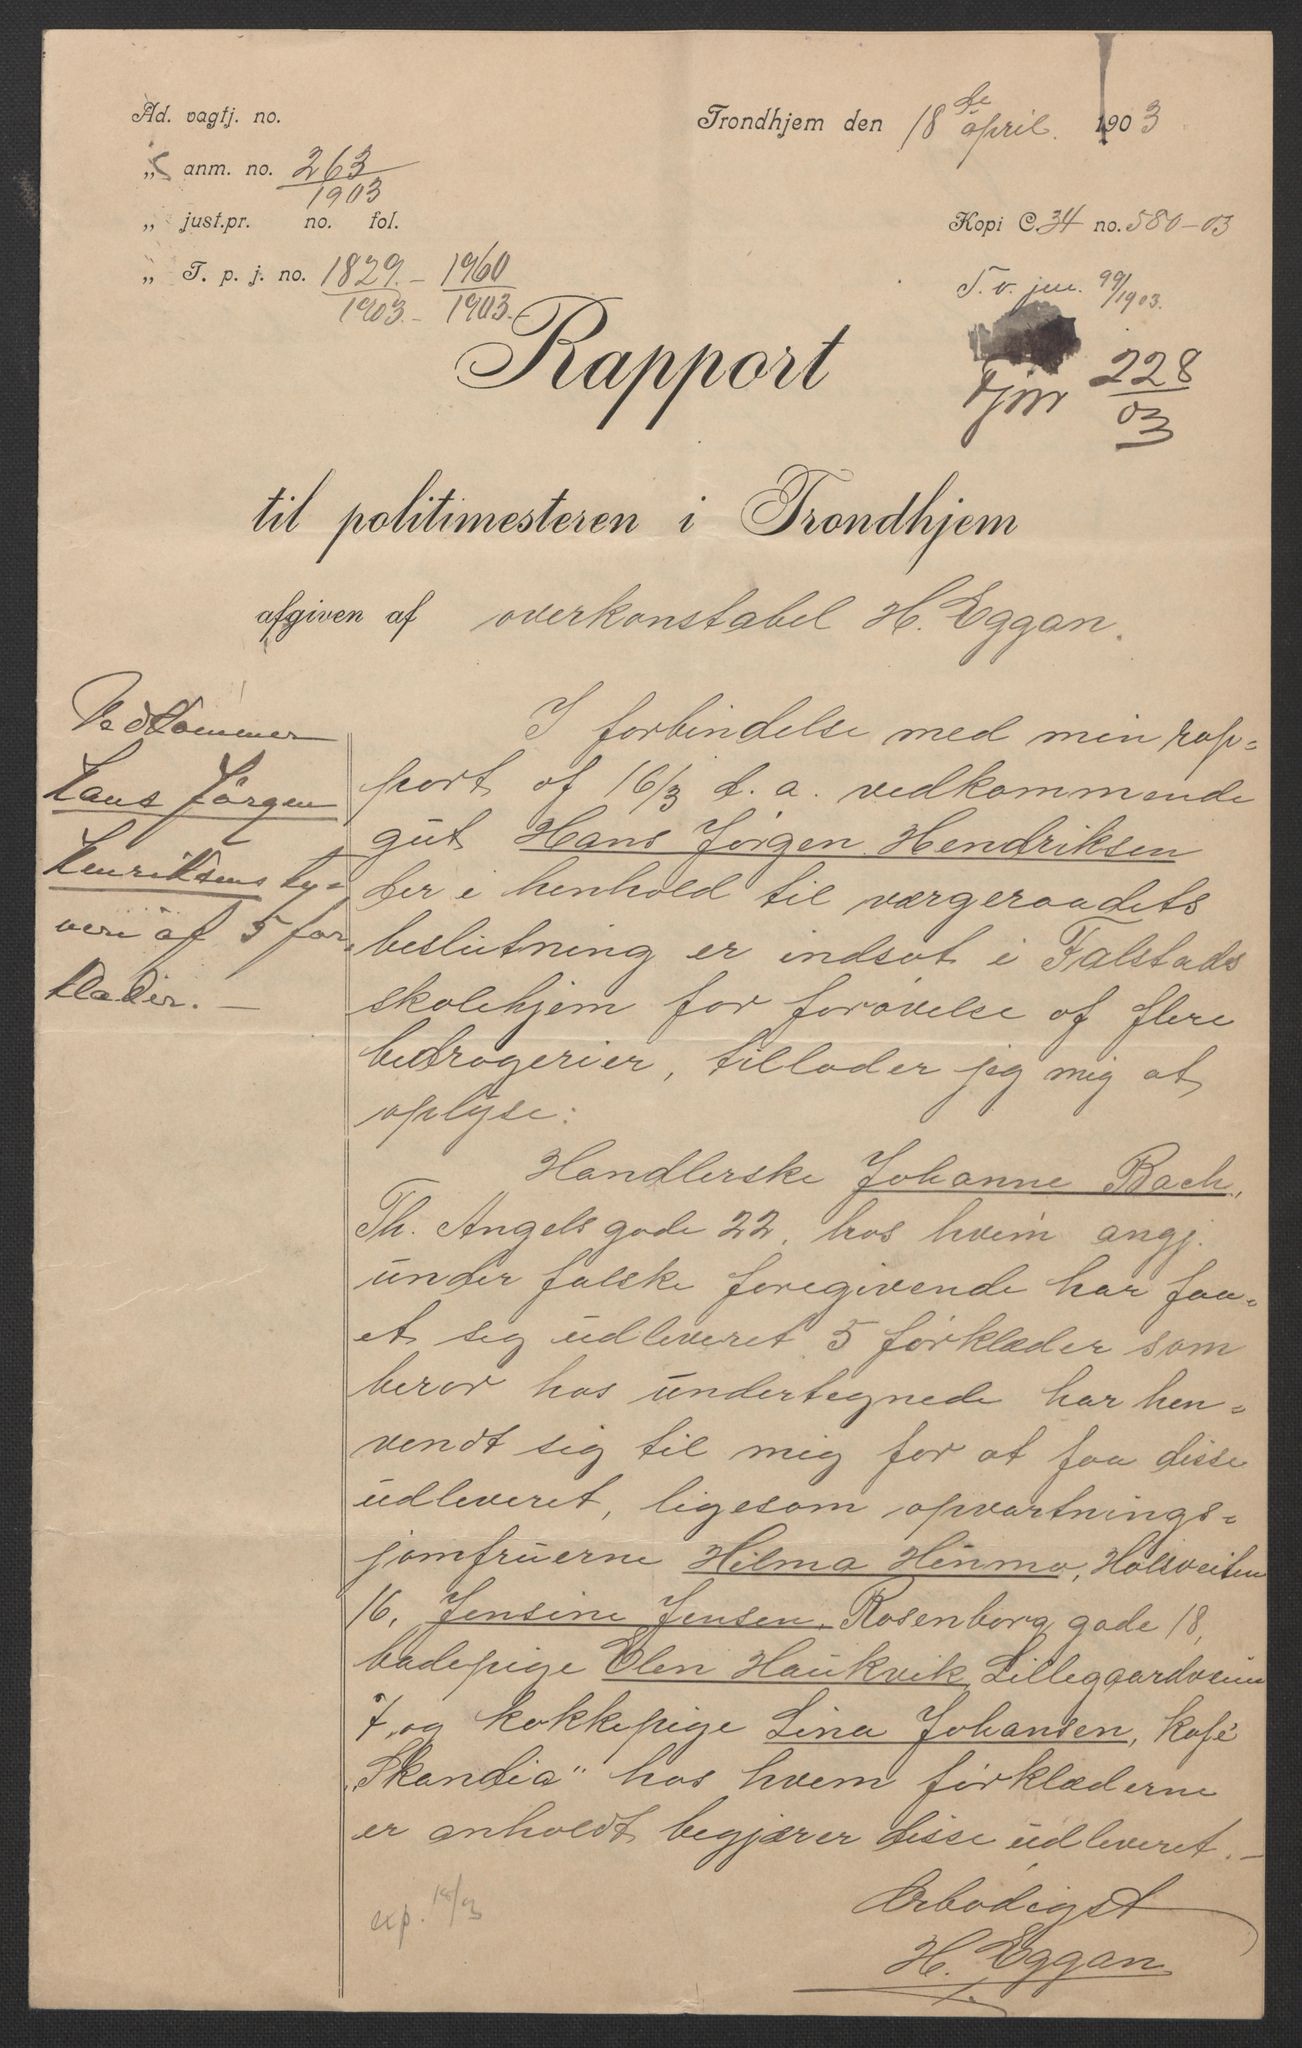 Ad. vagtj. no.
Trondhjem den 18de april 1903
„ anm. no. 263/1903
„ just.pr. no. fol.
Kopi C. 34 no. 580-03
„ T. p. j. no. 1829/1903. - 1960/1903.
T. v. jnr. 99/1903.
Rapport
Tjnr 228/03
til politimesteren i Trondhjem
afgiven af overkonstabel H. Eggan.
Vedkommer
Hans Jörgen
Henriksens ty-
veri af 5 for-
klæder. —
I forbindelse med min rap-
port af 16/3 d. a. vedkommende
gut Hans Jörgen Hendriksen
der i henhold til værgeraadets
beslutning er indsat i Falstads
skolehjem for forøvelse af flere
bedragerier, tillader jeg mig at
oplyse:
Handlerske Johanne Bach,
Th. Angels gade 22, hos hvem angj.
under falske foregivende har faa-
et sig udleveret 5 forklæder som
beror hos undertegnede har hen-
vendt sig til mig for at faa disse
udleveret, ligesom opvartnings-
jomfruerne Hilma Hinmo, Holsveiten
16, Jensine Jensen, Rosenborg gade 18,
badepige Elen Haukvik, Lillegaardvein
7, og kokkepige Lina Johansen, kafé
„Skandia" hos hvem forklæderne
er anholdt begjærer disse udleveret. —
Ærbødigst
H. Eggan
exp. 18/3